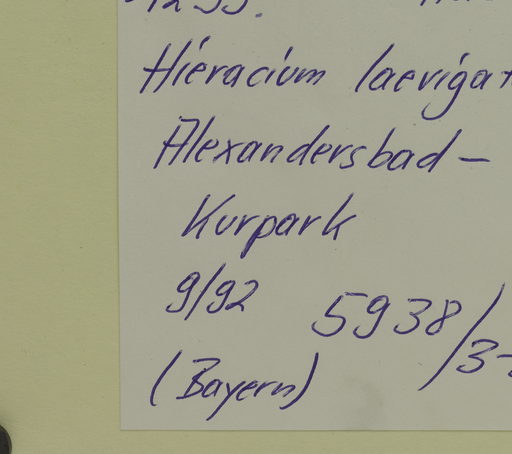 Hieracium laevigat
Alexandersbad –
Kurpark
9/92 5938/3-
(Bayern)